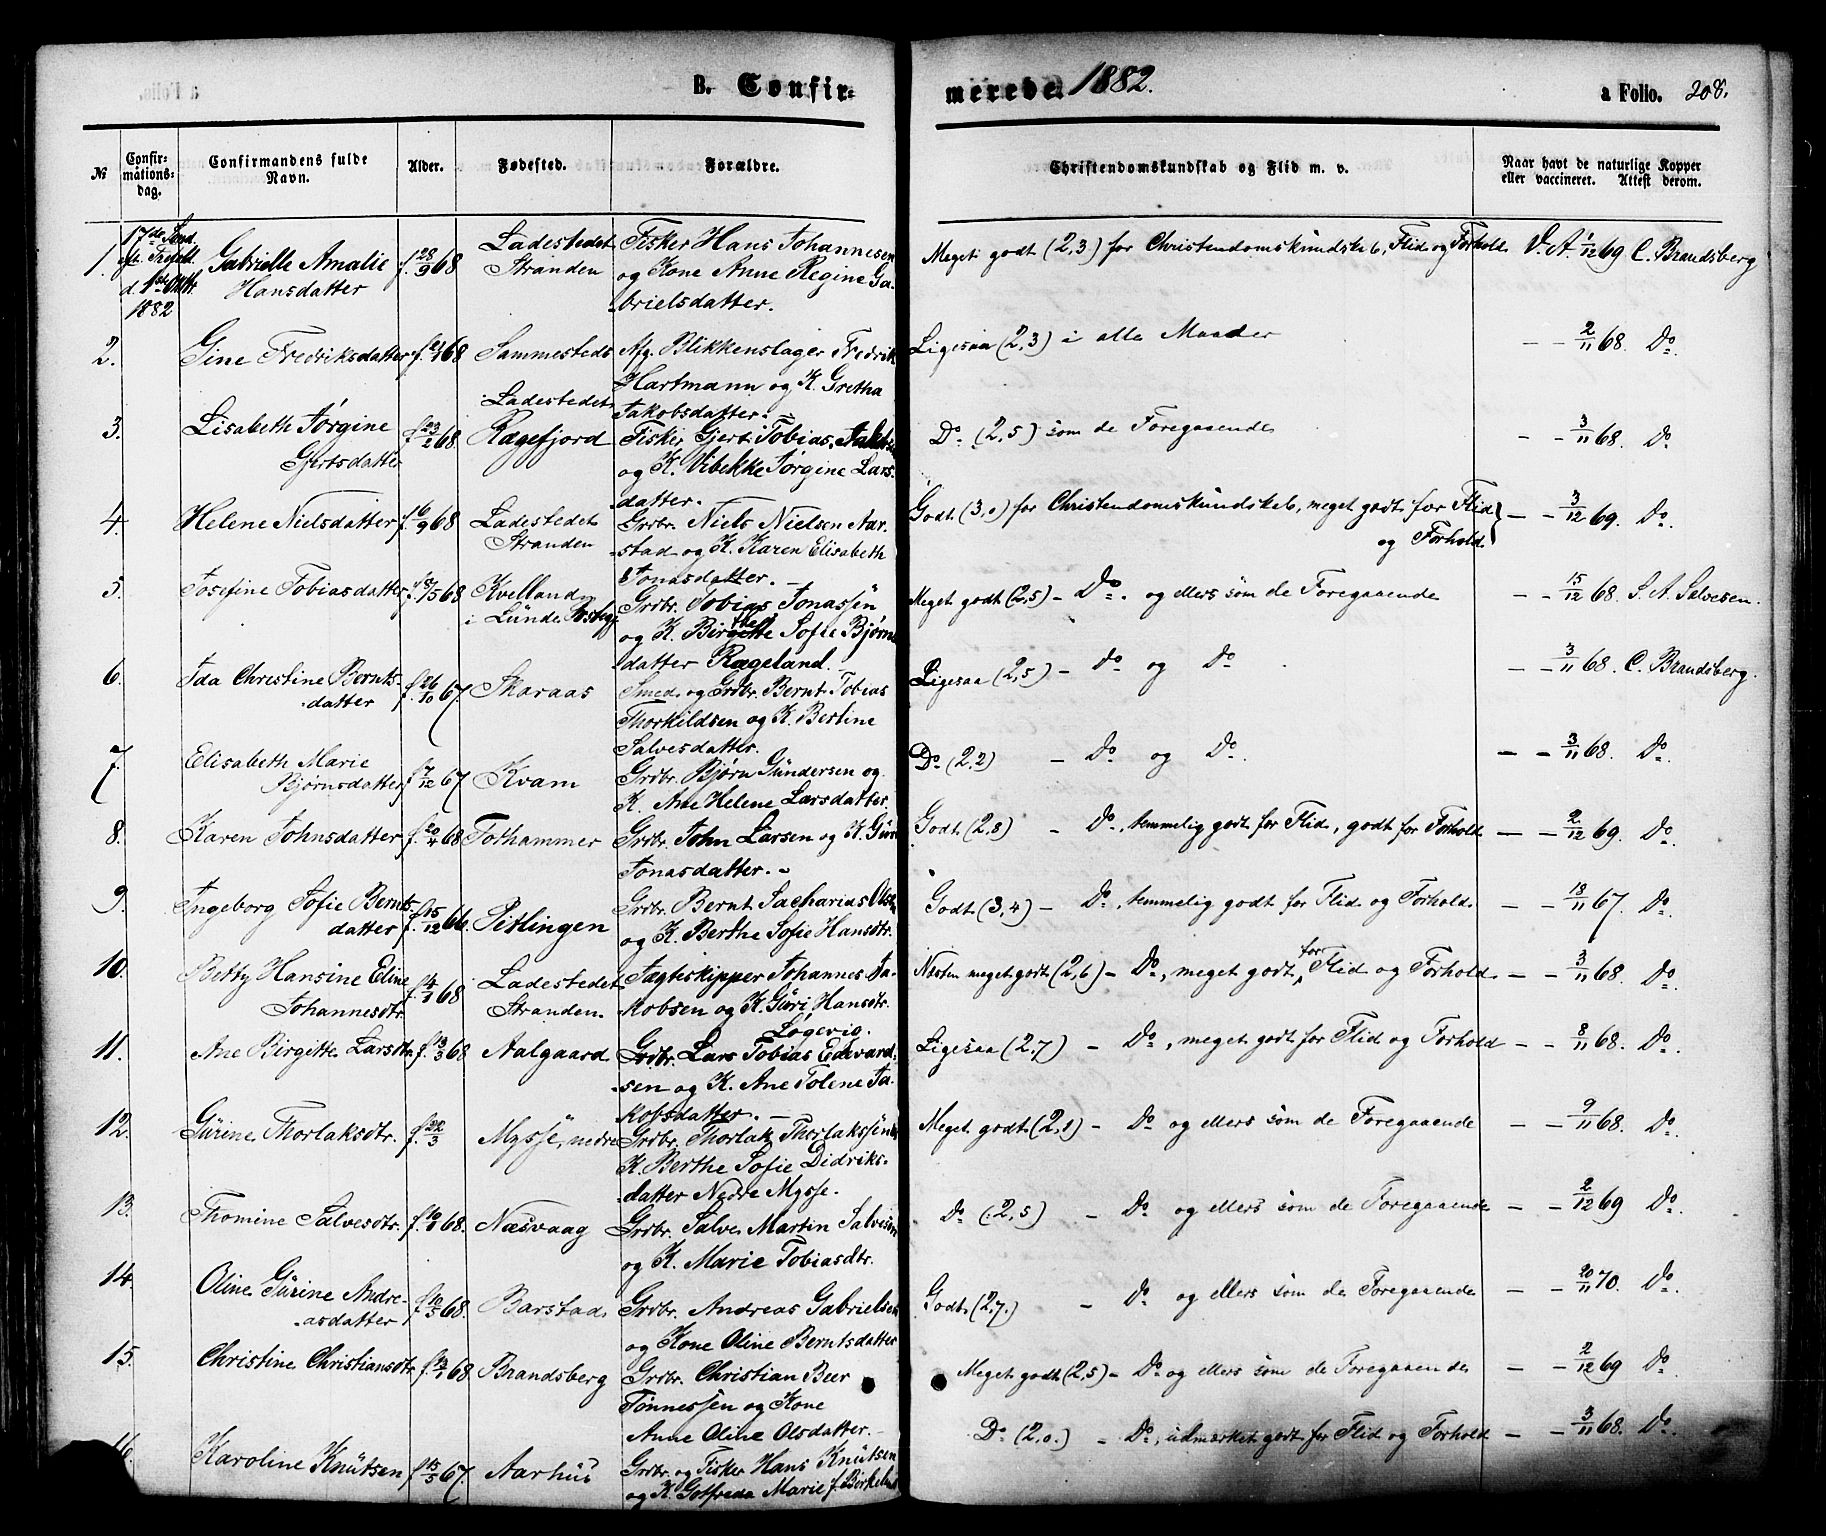 B. Confir-
merede 1882.
a Folio. 208.
№
Confir-
mations-
dag.
Confirmandens fulde
Navn.
Alder.
Fødested.
Forældre.
Christendomskundskab og Flid m. v.
Naar havt de naturlige Kopper
eller vaccineret. Attest derom.
1.
17de Sønd.
d. 1ste
1882
Gabrielle Amalie
Hansdatter
f. 28/9 68
Ladestedet
Stranden
Fisker Hans Johannesen
og Kone Anne Regine Ga-
brielsdatter.
Meget godt (2,3) for Christendomskundskab, Flid og Forhold.
V. A. 1/12 69 C. Brandsberg
2.
Gine Fredriksdatter
f. 21/1 68
Sammesteds
Afg. Blikkenslager Fredrik
Hartmann og K. Gretha
Jakobsdatter.
Ligesaa (2,3) i alle Maader
– – 2/11 68. Do.
3.
Lisabeth Jørgine
Gjertsdatter
f. 23/2 68.
Ladestedet
Rægefjord
Fisker Gjert Tobias
og K. Vibekke Jørgine Lars-
datter.
Do. (2,5) som de Foregaaende
– – 3/11 68. Do.
4.
Helene Nielsdatter
f. 16/9 68
Ladestedet
Stranden
Grdbr. Niels Nielsen Aar-
stad og K. Karen Elisabeth
Jonasdatter. –
Godt (3,0) for Christendomskundskab, meget godt for Flid
og Forhold
– – 3/12 69. Do.
5.
Josefine Tobiasdatter
f. 8/5 68
Kvelland
i Lunde
Grdbr. Tobias Jonassen
og K. Birgitte Sofie Bjørns-
datter Rægeland. –
Meget godt (2,5) – Do. og ellers som de Foregaaende
– – 15/12 68. S. A. Salvesen.
6.
Ida Christine Bernts-
datter
f. 26/10 67.
Skaraas
Smed og Grdbr. Bernt Tobias
Thorkildsen og K. Bertine
Salvesdatter.
Ligesaa (2,5) – Do og Do
– – 3/11 68. C. Brandsberg.
7.
Elisabeth Marie
Bjørnsdatter
f. 7/12 67
Kvam
Grdbr. Bjørn Gundersen og
K. Ane Helene Larsdatter.
Do (2,2) – Do og Do.
– – 3/11 68. Do.
8.
Karen Johnsdatter
f. 20/4 68
Fothammer
Grdbr. John Larsen og K. Guri
Jonasdatter. –
Godt (2,8) – Do, temmelig godt for Flid, godt for Forhold
– – 2/12 69. Do.
9.
Ingeborg Sofie Bernts-
datter
f. 15/12 66.
Pitlingen
Grdbr. Bernt Sacharias Olsen
og K. Berthe Sofie Hansdtr.
Godt (3,4) – Do, temmelig godt for Flid og Forhold
– – 13/11 67. Do.
10.
Betty Hansine Eline
Johannesdtr.
f. 14/1 68
Ladestedet
Stranden.
Jagtskipper Johannes Ja-
kobsen og K. Guri Hansdtr.
Løgevig.
Næsten meget godt (2,6) – Do, meget godt for Flid og Forhold
– – 3/11 68. Do.
11.
Ane Birgitte Larsdtr.
f. 13/3 68
Aalgaard
Grdbr. Lars Tobias Edvard-
sen og K. Ane Tolene Ja-
kobsdatter. –
Ligesaa (2,7) – Do, meget godt for Flid og Forhold
– – 8/11 68. Do.
12.
Gurine Thorlaksdtr.
f. 22/3
Mysse, nedre
Grdbr. Thorlak Thorlakssen og
K. Berthe Sofie Didriks-
datter Nedre Mysse.
Meget godt (2,1) – Do og ellers som de Foregaaende
– – 9/11 68. Do.
13.
Thomine Salvesdtr.
f. 10/1 68.
Næsvaag
Grdbr. Salve Martin Salvesen
og K. Marie Tobiasdtr.
Do (2,5) – Do og ellers som de Foregaaende
– – 2/12 69 Do.
14.
Oline Gurine Andre-
asdatter
f. 10/5 68.
Barstad
Grdbr. Andreas Gabrielsen
og Kone Oline Berntsdatter
Godt (2,7.) – Do og ellers som de Foregaaende
– – 20/11 70. Do.
15.
Christine Christiansdtr.
f. 23/1 68.
Brandsberg
Grdbr. Christian Beer
Tønnessen og Kone
Anne Oline Olsdatter. –
Meget godt (2,5) – Do og ellers som de Foregaaende
– – 2/12 69 Do
16.
Karoline Knutsen
f. 15/5 67.
Aarhus
Grdbr. og Fisker Hans Knutsen
og K. Gotfreda Marie f. Birkeland
Do (2,0.) – Do, udmærket godt for Flid og Forhold
– – 3/11 68. Do.